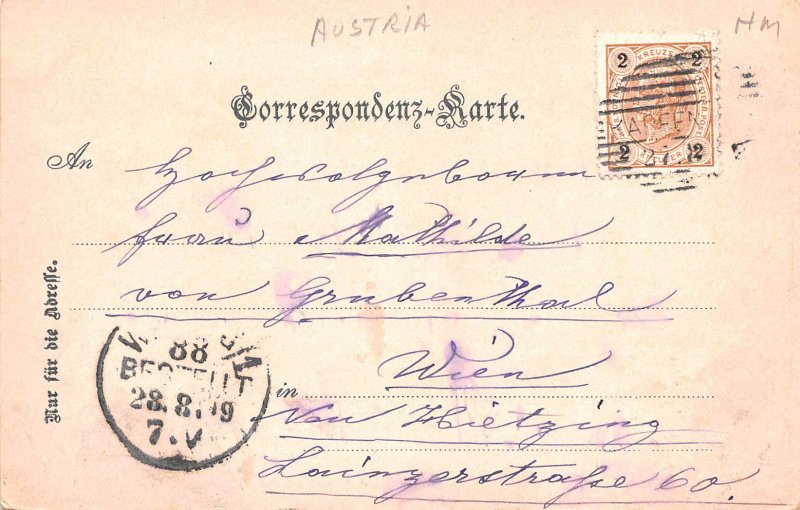 AUSTRIA HM
2 KREUZER 2
2 KREUZER 2
27
Correspondenz-Karte.
An Hochwolgeboren
Frau Mathilde
von Grubenthal
Wien
in Neu Hietzing
Lainzerstraße 60.
Nur für die Adresse.
88
BESTELLT
28.8.99
7.V